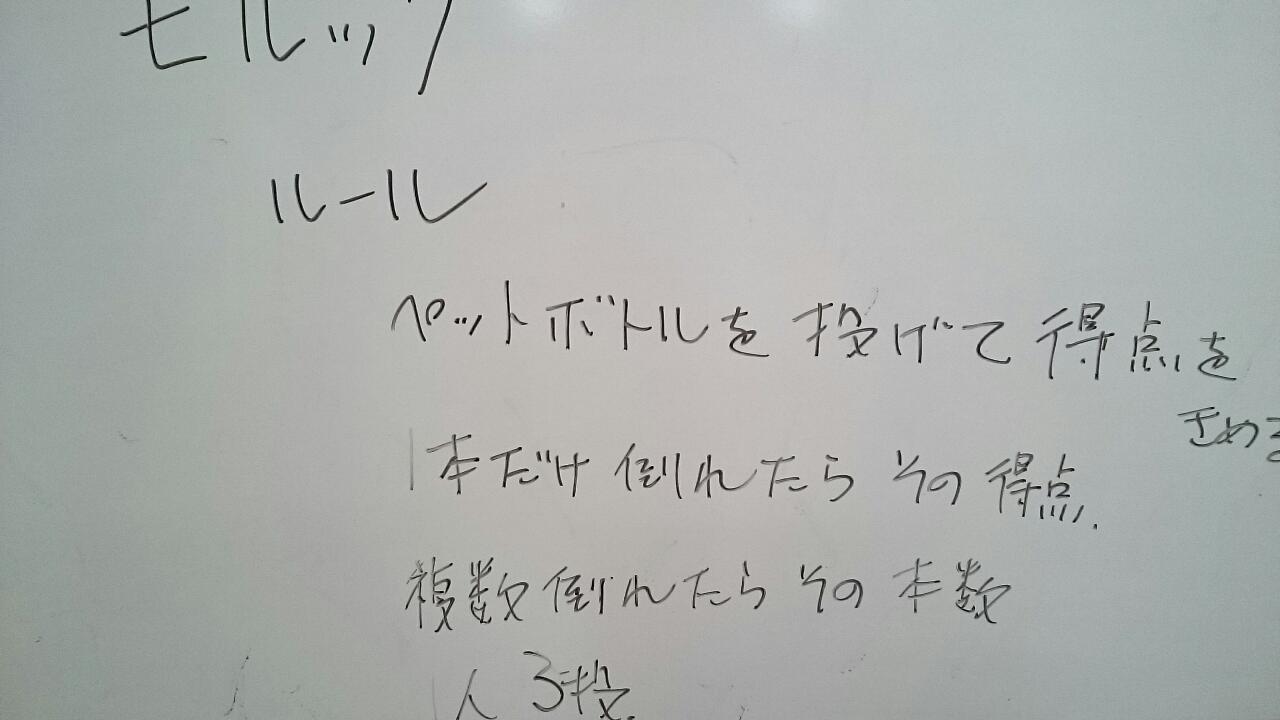 モルック
ルール
ペットボトルを投げて得点を
きめる
1本だけ倒れたらその得点.
複数倒れたらその本数
1人3投.